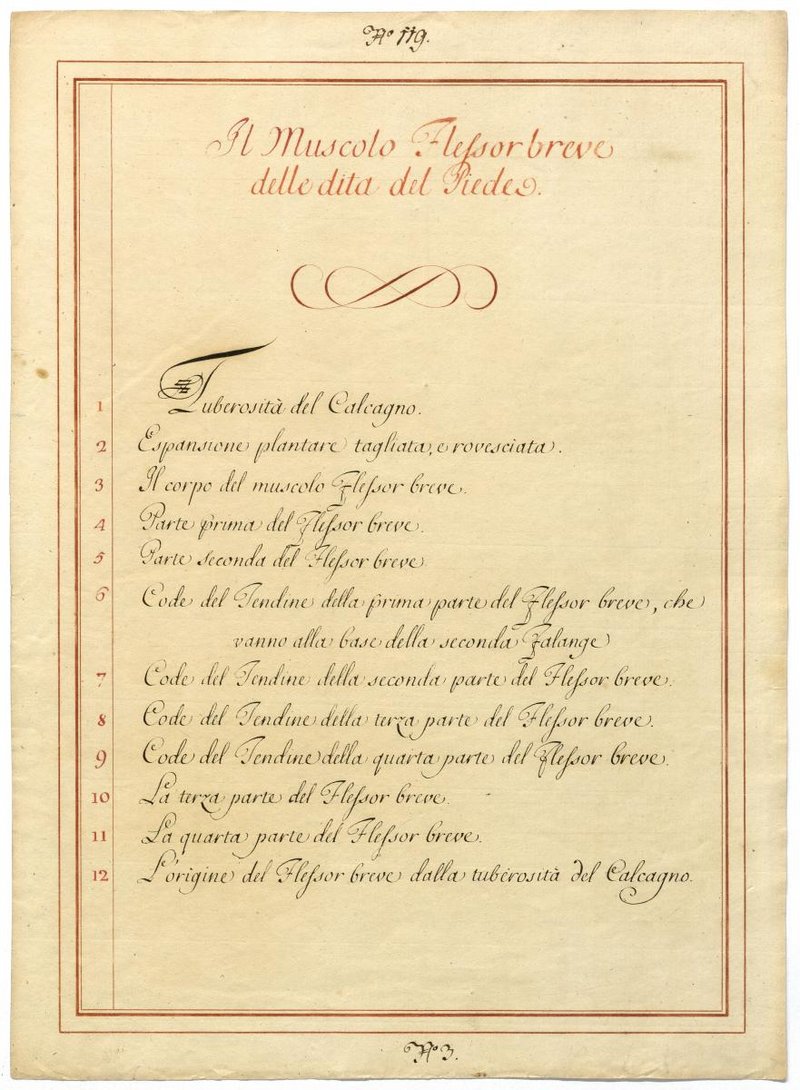 No 119.
Il Muscolo Flessor breve
delle dita del Piede.
1 Tuberosità del Calcagno.
2 Espansione plantare tagliata, e rovesciata.
3 Il corpo del muscolo Flessor breve.
4 Parte prima del Flessor breve.
5 Parte seconda del Flessor breve.
6 Code del Tendine della prima parte del Flessor breve, che
vanno alla base della seconda Falange
7 Code del Tendine della seconda parte del Flessor breve.
8 Code del Tendine della terza parte del Flessor breve.
9 Code del Tendine della quarta parte del Flessor breve.
10 La terza parte del Flessor breve.
11 La quarta parte del Flessor breve.
12 L'origine del Flessor breve dalla tuberosità del Calcagno.
No 3.